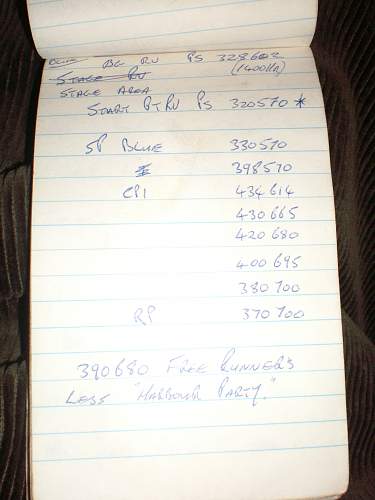 BG RV PS 328602
STAGE RV (1400HR)
STAGE AREA
START PT RV PS 320570 *
SP BLUE 330570
398570
CP1 434 614
430 665
420 680
400 695
380 700
RP 370 700
390680 FREE RUNNERS
LESS "HARBOUR PARTY."